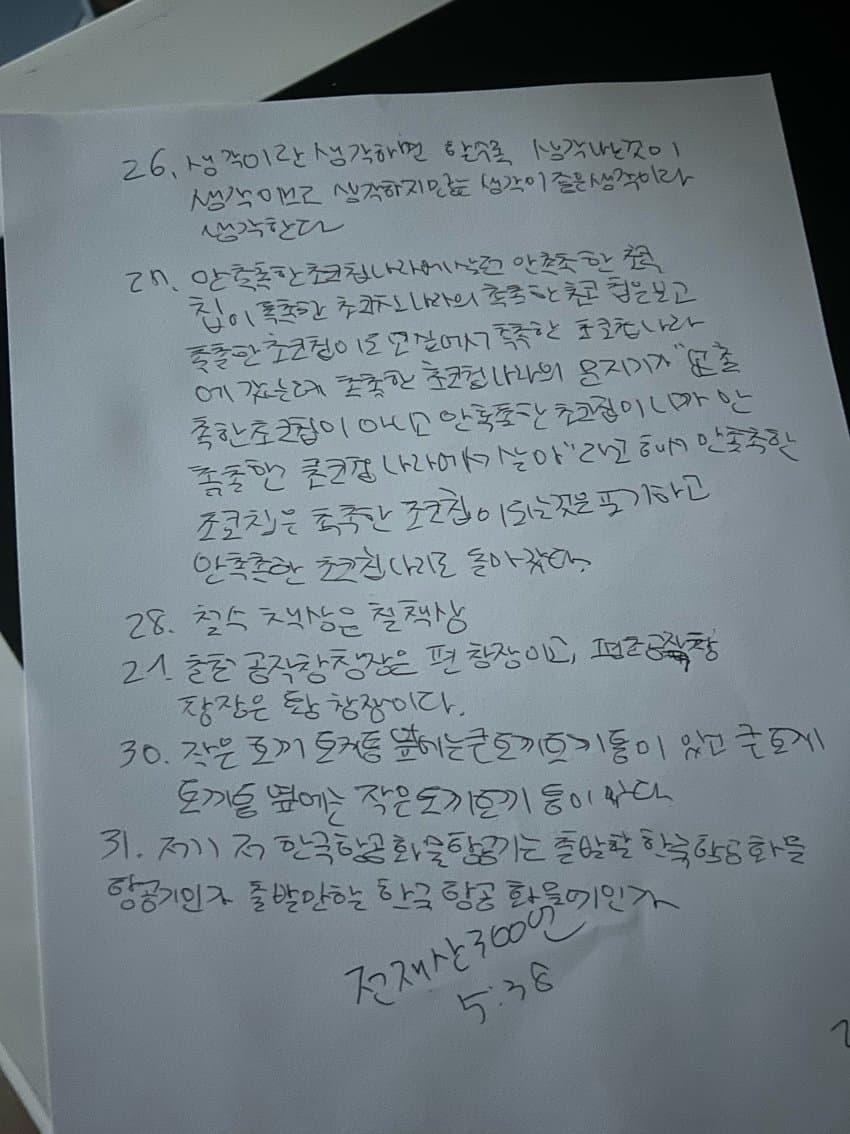 26. 생각이란 생각하면 할수록 생각나는것이
생각이므로 생각하지않는 생각이 좋은생각이라
생각한다
27. 안촉촉한초코칩나라에살던 안촉촉한 초코
칩이 촉촉한 초코칩나라의 촉촉한초코칩을보고
촉촉한초코칩이 되고싶어서 촉촉한 초코칩나라
에 갔는데 촉촉한 초코칩나라의 문지기가 "넌촉
촉한초코칩이 아니고 안촉촉한 초코칩이니까 안
촉촉한 초코칩나라에서살아"라고 해서 안촉촉한
초코칩은 촉촉한 초코칩이되는것을 포기하고
안촉촉한 초코칩나라로 돌아갔다.
28. 철수 책상은 철책상
29. 공작창창장은 편 창장이고, 평촌공작창
창장은 황 창장이다.
30. 작은 토끼 토끼통 옆에는큰토끼토끼통이 있고 큰토끼
토끼통 옆에는 작은토끼토끼 통이 있다
31. 저기 저 한국항공화물항공기는 출발할 한국항공화물
항공기인가 출발안할 한국 항공 화물기인가
전재산300원
5:38